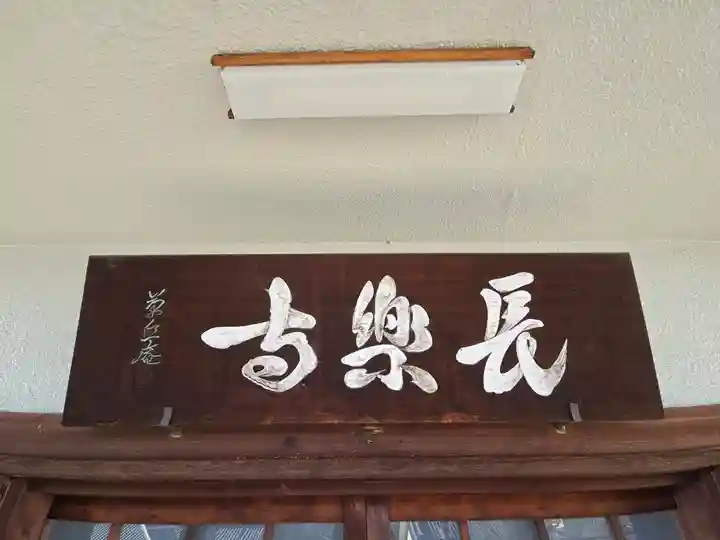 長樂寺